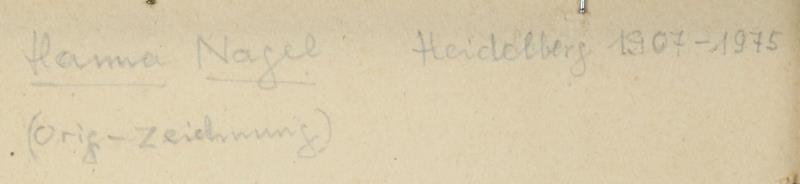 Hanna Nagel Heidelberg 1907-1975
(Orig-Zeichnung)